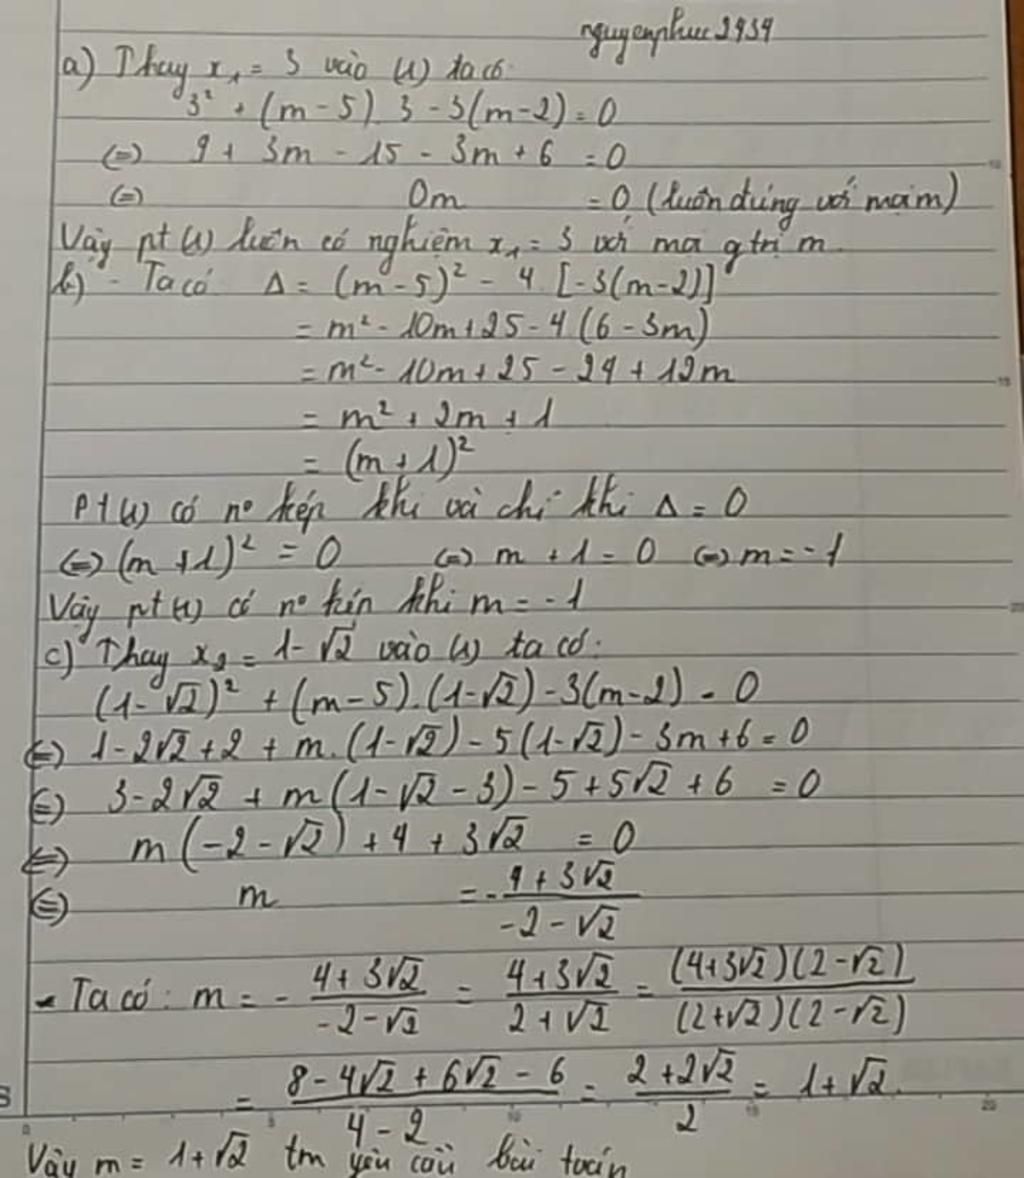 nguyenphuc2434
a) Thay x₁ = 3 vào (1) ta có
3² + (m - 5) 3 - 3(m - 2) = 0
(=) 9 + 3m - 15 - 3m + 6 = 0
(=) 0m = 0 (luôn đúng với mọi m)
Vậy pt (1) luôn có nghiệm x₁ = 3 với mọi g trị m
b) - Ta có Δ = (m - 5)² - 4 [-3(m - 2)]
= m² - 10m + 25 - 4 (6 - 3m)
= m² - 10m + 25 - 24 + 12m
= m² + 2m + 1
= (m + 1)²
Pt (1) có n° kép khi và chỉ khi Δ = 0
(=) (m + 1)² = 0 (=) m + 1 = 0 (=) m = -1
Vậy pt (1) có n° kép khi m = -1
c) Thay x₂ = 1 - √2 vào (1) ta có:
(1 - √2)² + (m - 5).(1 - √2) - 3(m - 2) = 0
(=) 1 - 2√2 + 2 + m.(1 - √2) - 5(1 - √2) - 3m + 6 = 0
(=) 3 - 2√2 + m(1 - √2 - 3) - 5 + 5√2 + 6 = 0
(=) m(-2 - √2) + 4 + 3√2 = 0
(=) m = - (4 + 3√2)/(-2 - √2)
- Ta có: m = - (4 + 3√2)/(-2 - √2) = (4 + 3√2)/(2 + √2) = (4 + 3√2)(2 - √2)/(2 + √2)(2 - √2)
= (8 - 4√2 + 6√2 - 6)/(4 - 2) = (2 + 2√2)/2 = 1 + √2.
Vậy m = 1 + √2 tm yêu cầu bài toán